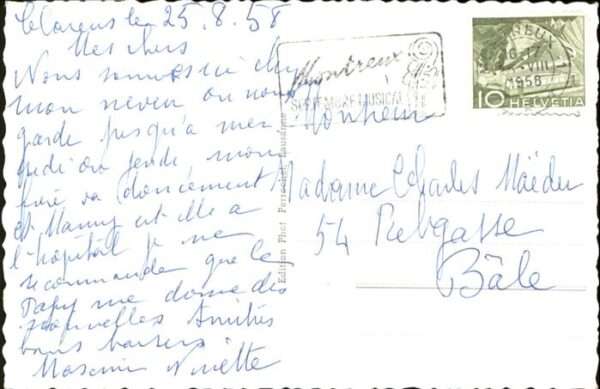 Clarens le 25.8.58
Mes chers
Nous sommes ici chez
mon neveu on nous
garde jusqu'à mer
credi ou jeudi. mon
foie va doucement
et Mamy est elle a
l'hôpital je ne
recommande que le
Papy me donne des
nouvelles Amitiés
bons baisers
Ninette
Montreux
SEPTEMBRE MUSICAL
MONTREUX
1958
10 HELVETIA
Edition Phot Perrochet Lausanne
Monsieur
Madame Charles Mäder
54 Rebgasse
Bâle